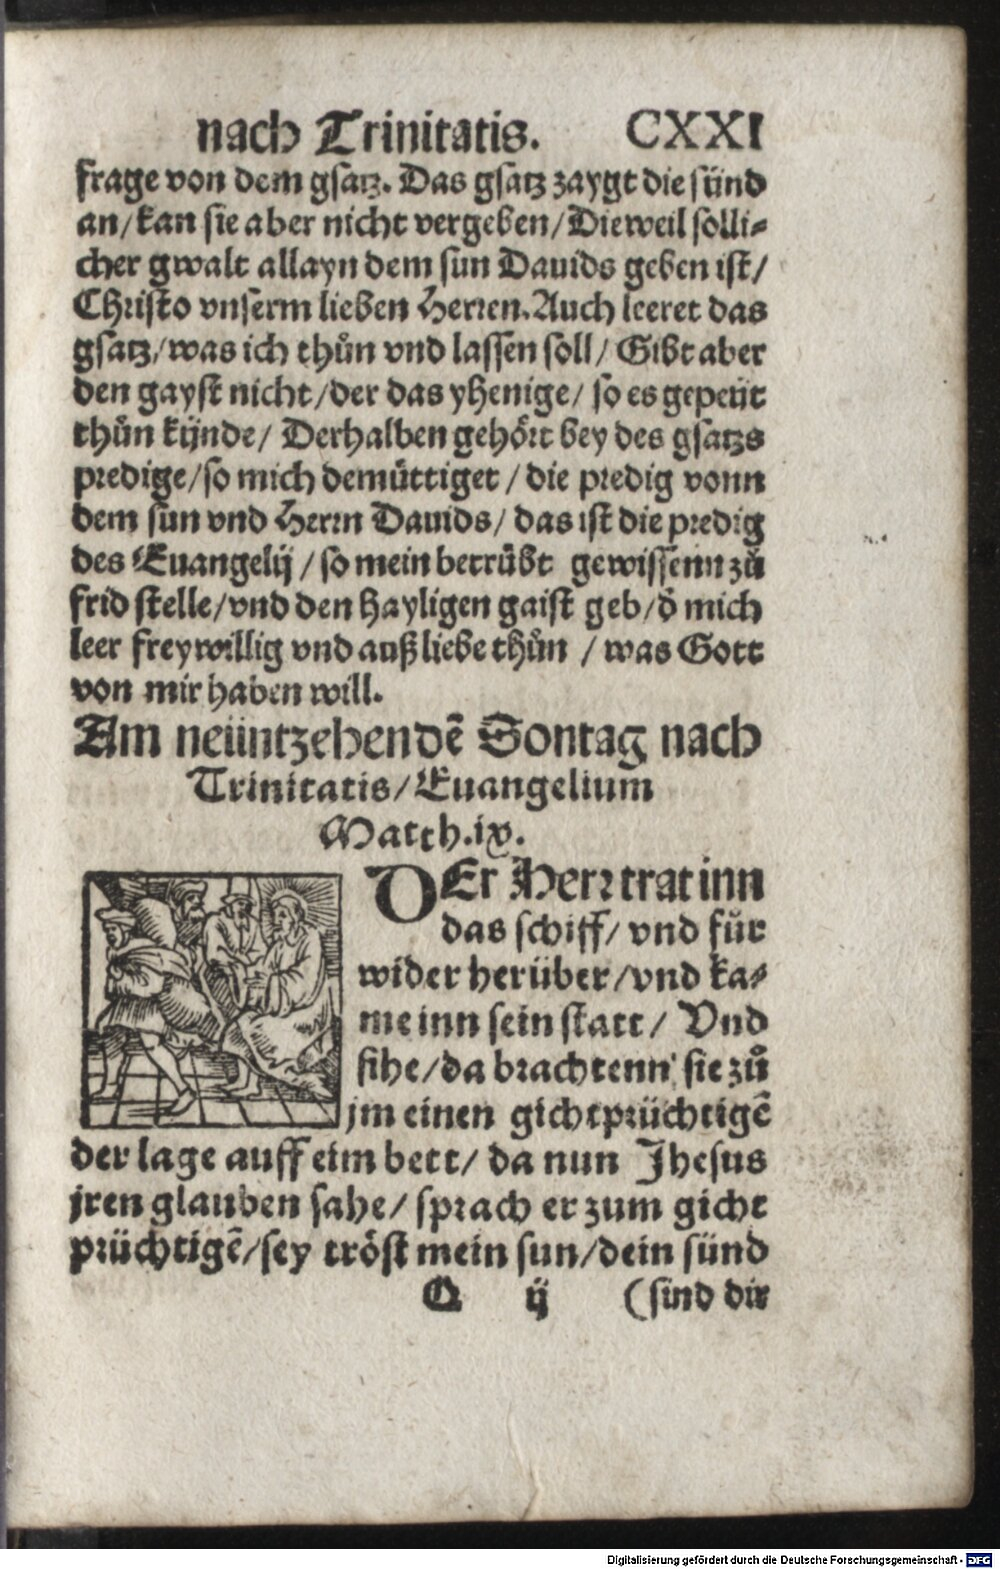 nach Trinitatis. CXXI
frage von dem gsatz. Das gsatz zaygt die sünd
an/ kan sie aber nicht vergeben/ Dieweil solli⸗
cher gwalt allayn dem sun Dauids geben ist/
Christo vnserm lieben Herren. Auch leeret das
gsatz/ was ich thůn vnd lassen soll/ Gibt aber
den gayst nicht/ der das yhenige/ so es gepeüt
thůn kynde/ Derhalben gehört bey des gsatzs
predige/ so mich demüttiget/ die predig vonn
dem sun vnd Herrn Dauids/ das ist die predig
des Euangelij/ so mein betrübt gewissenn zů
frid stelle/ vnd den hayligen gaist geb/ d̄ mich
leer freywillig vnd auß liebe thůn / was Gott
von mir haben will.
Am neüntzehendē Sontag nach
Trinitatis/ Euangelium
Matth.ix.
DEr Herr trat inn
das schiff/ vnd fůr
wider herüber/ vnd ka⸗
me inn sein statt/ Vnd
sihe/ da brachtenn sie zů
jm einen gichtprüchtigē
der lage auff eim bett/ da nun Jhesus
jren glauben sahe/ sprach er zum gicht
prüchtigē/ sey tröst mein sun/ dein sünd
Q ij (sind dir
Digitalisierung gefördert durch die Deutsche Forschungsgemeinschaft - DFG